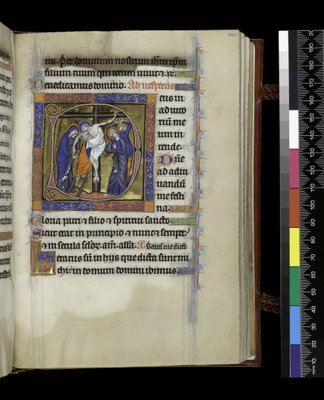 nos. Per dominum nostrum ihm xpm
filium tuum qui tecum uiuit et r.
Benedicamus domino. Ad uesperas
eus in
ad iuto
rium me
um in
tende.
Dne
ad adiu
uandū
me festi
na.
Gloria patri et filio et spiritui sancto
Sicut erat in principio et nunc et semper
et in secula sclor. am. alla.
Letatus sū in hijs que dicta sunt mi
chi: in domum domini ibimus.